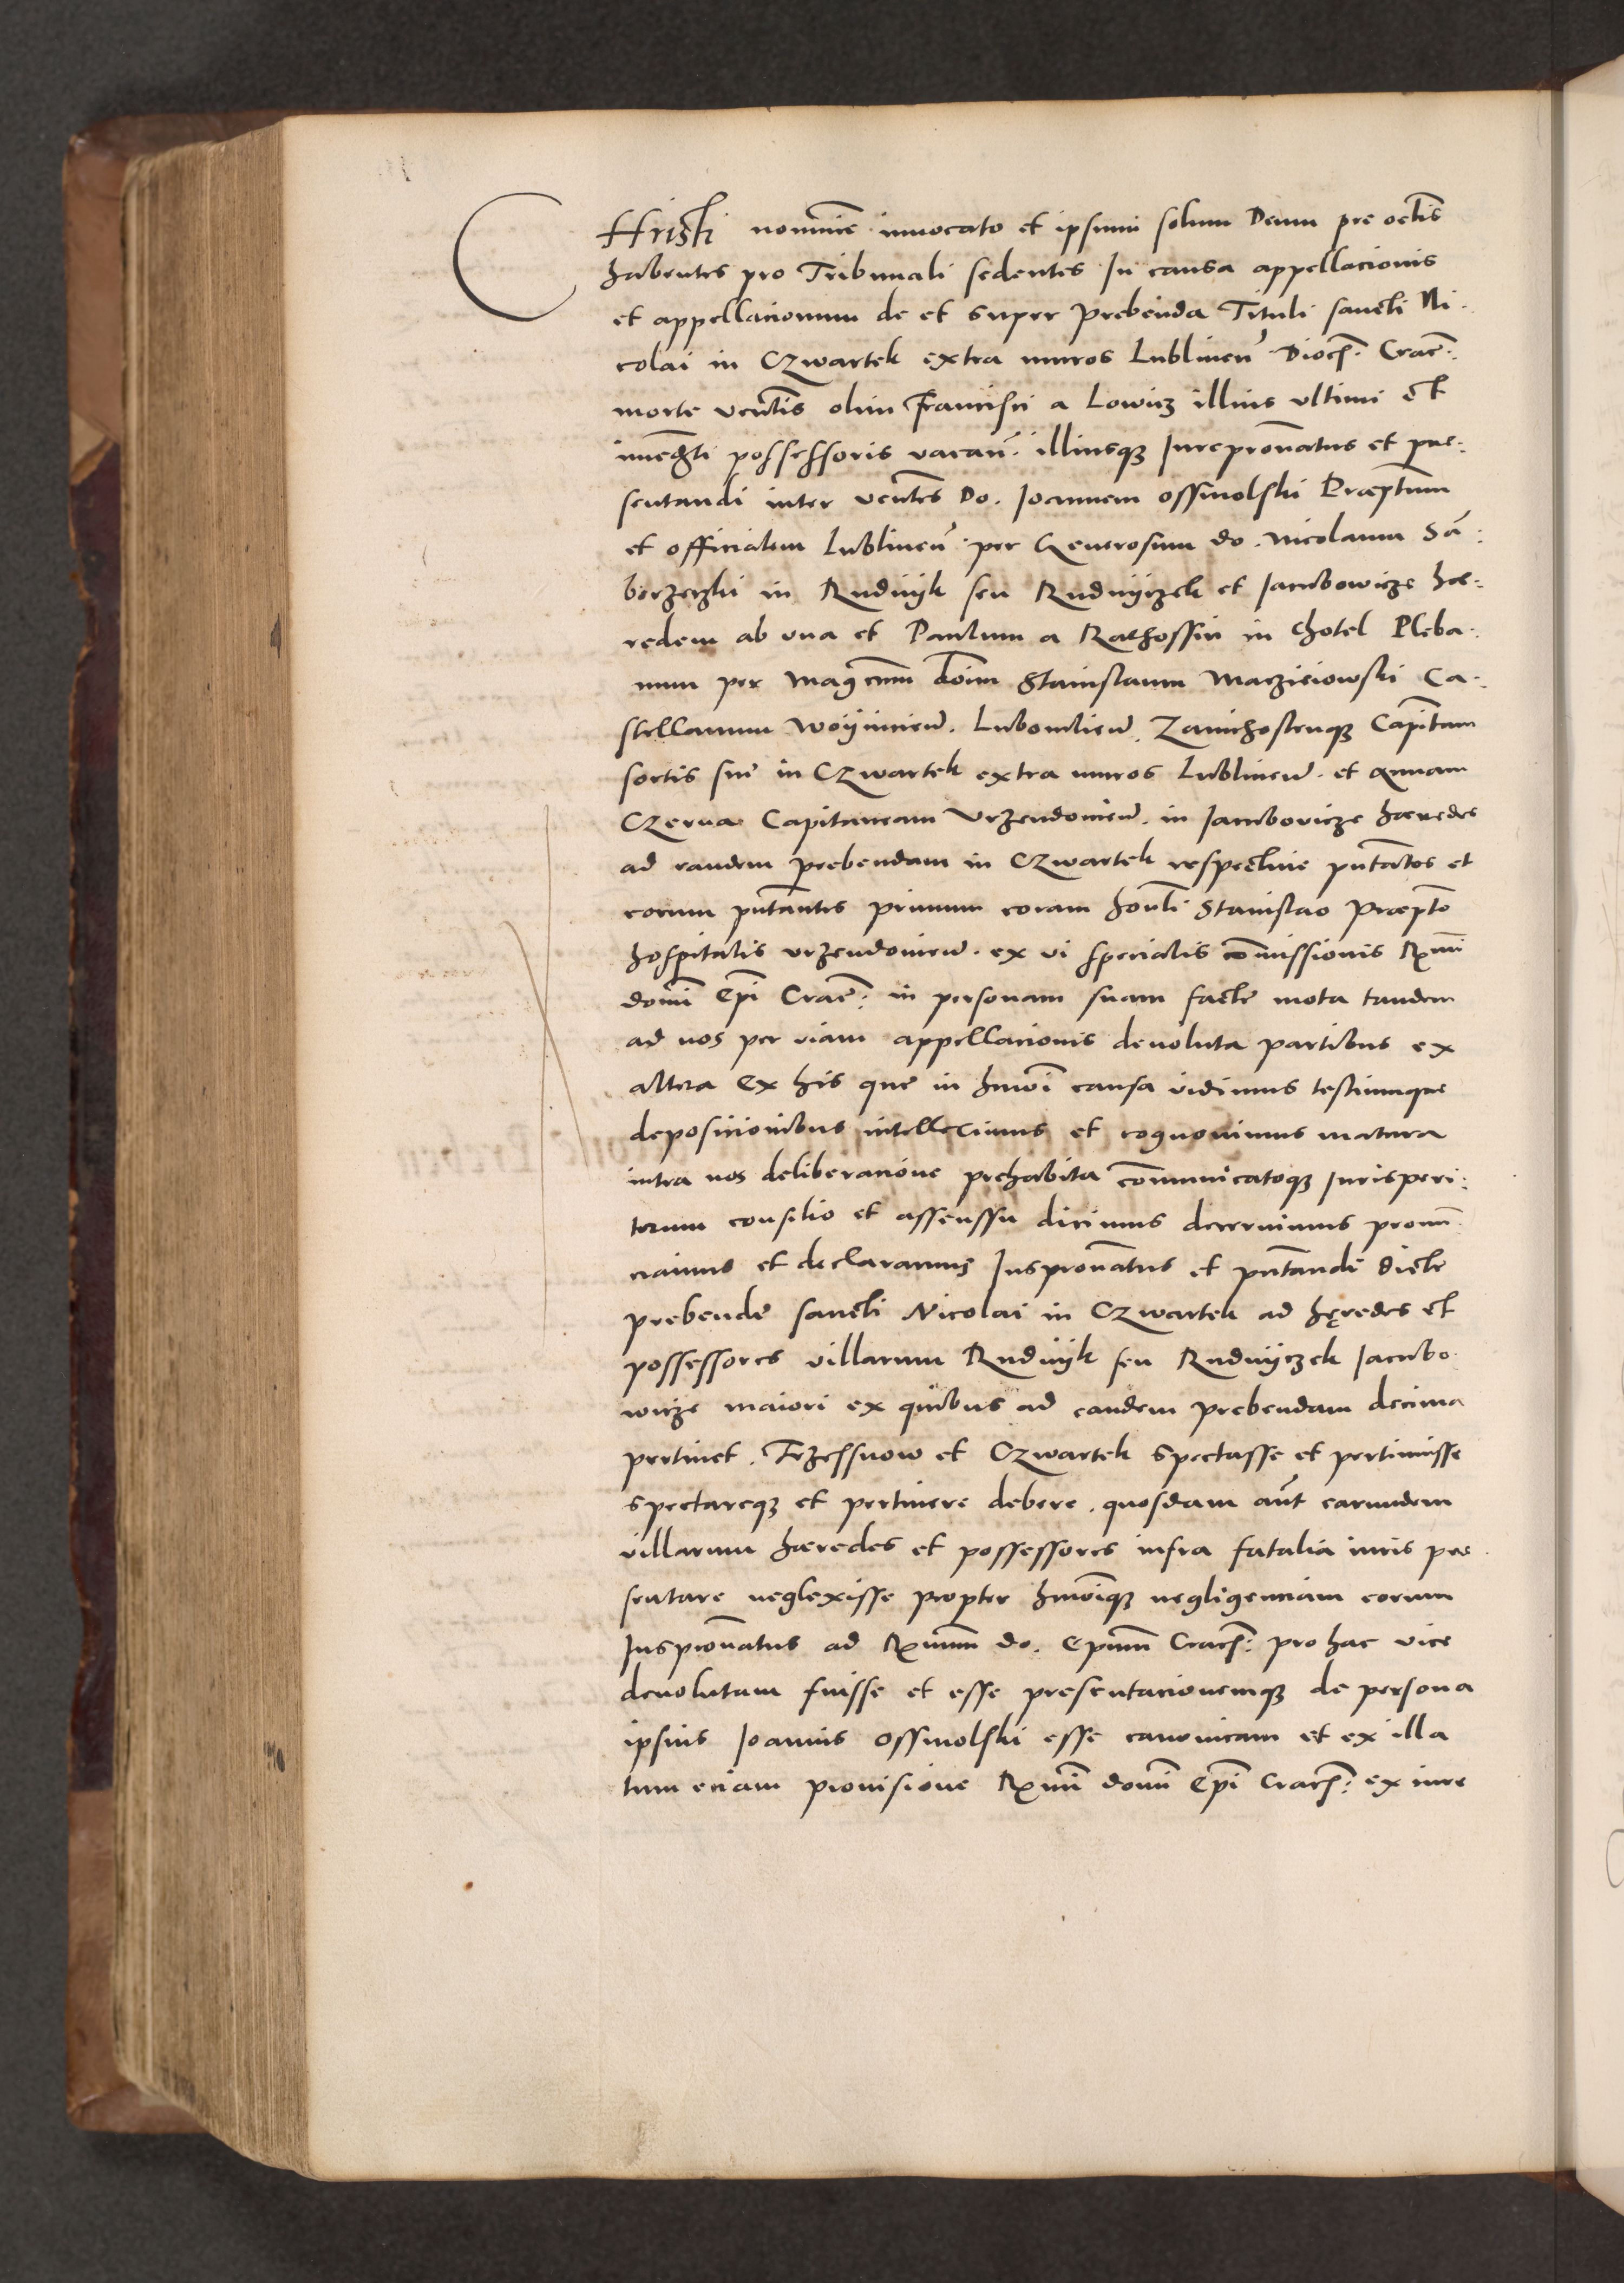 CHristi nomine invocato et ipsum solum Deum pre oclis
habentes pro Tribunali sedentes In causa appellacionis
et appellacionum de et super prebenda Tituli sancti Ni-
colai in Czwartek extra muros Lublinen Dioc. Crac.
morte ventis olim Francisci a Lowicz illius ultimi et
immediati possessoris vacan. illiusque Jurepronatus et pre-
sentandi inter ventes Do. Joannem ossmolski Præptum
et officialem Lublinen per Generosum do. Nicolaum Sa-
borzeczki in Rudnyk seu Rudnyczek et Jacubowicze hæ-
redem ab una et Paulum a Rathossin in Chotel Pleba-
num per Magcum doim Stanislaum Maczieiowski Ca-
stellanum Woynicien. Lubomlien. Zawichostenque Capitam
sortis sue in Czwartek extra muros Lublinen. et Annam
Czerna Capitaneam Vrzendovien. in Jacubovicze hæredes
ad eandem prebendam in Czwartek respective pntatos et
eorum pntantes primum coram honli Stanislao Præpto
hospitalis vrzendovien. ex vi specialis commissionis Rmi
domi Epi Crac. in personam suam facte mota tandem
ad nos per viam appellacionis devoluta partibus ex
altera Ex his que in hmoi causa vidimus testiumque
deposicionibus intelleximus et cognovimus matura
intra nos deliberacione prehabita communicatoque Jurisperi-
torum consilio et assenssu dicimus decernimus pronun
ciamus et declaramus Juspronatus et pntandi dicte
prebende sancti Nicolai in Czwartek ad hęredes et
possessores villarum Rudnyk seu Rudnyczek Jacubo-
wicze maiori ex quibus ad eandem prebendam decima
pertinet. Trzessnow et Czwartek spectasse et pertinuisse
spectareque et pertinere debere. quosdam aut earundem
villarum hæredes et possessores infra fatalia iuris pre
sentare neglexisse propter hmoique negligenciam eorum
Juspronatus ad Rmum do. Epum Crac. pro hac vice
devolutam fuisse et esse presentacionemque de persona
ipsius Joannis ossmolski esse canonicam et ex illa
tum eciam provisione Rmi domi Epi Crac. ex iure